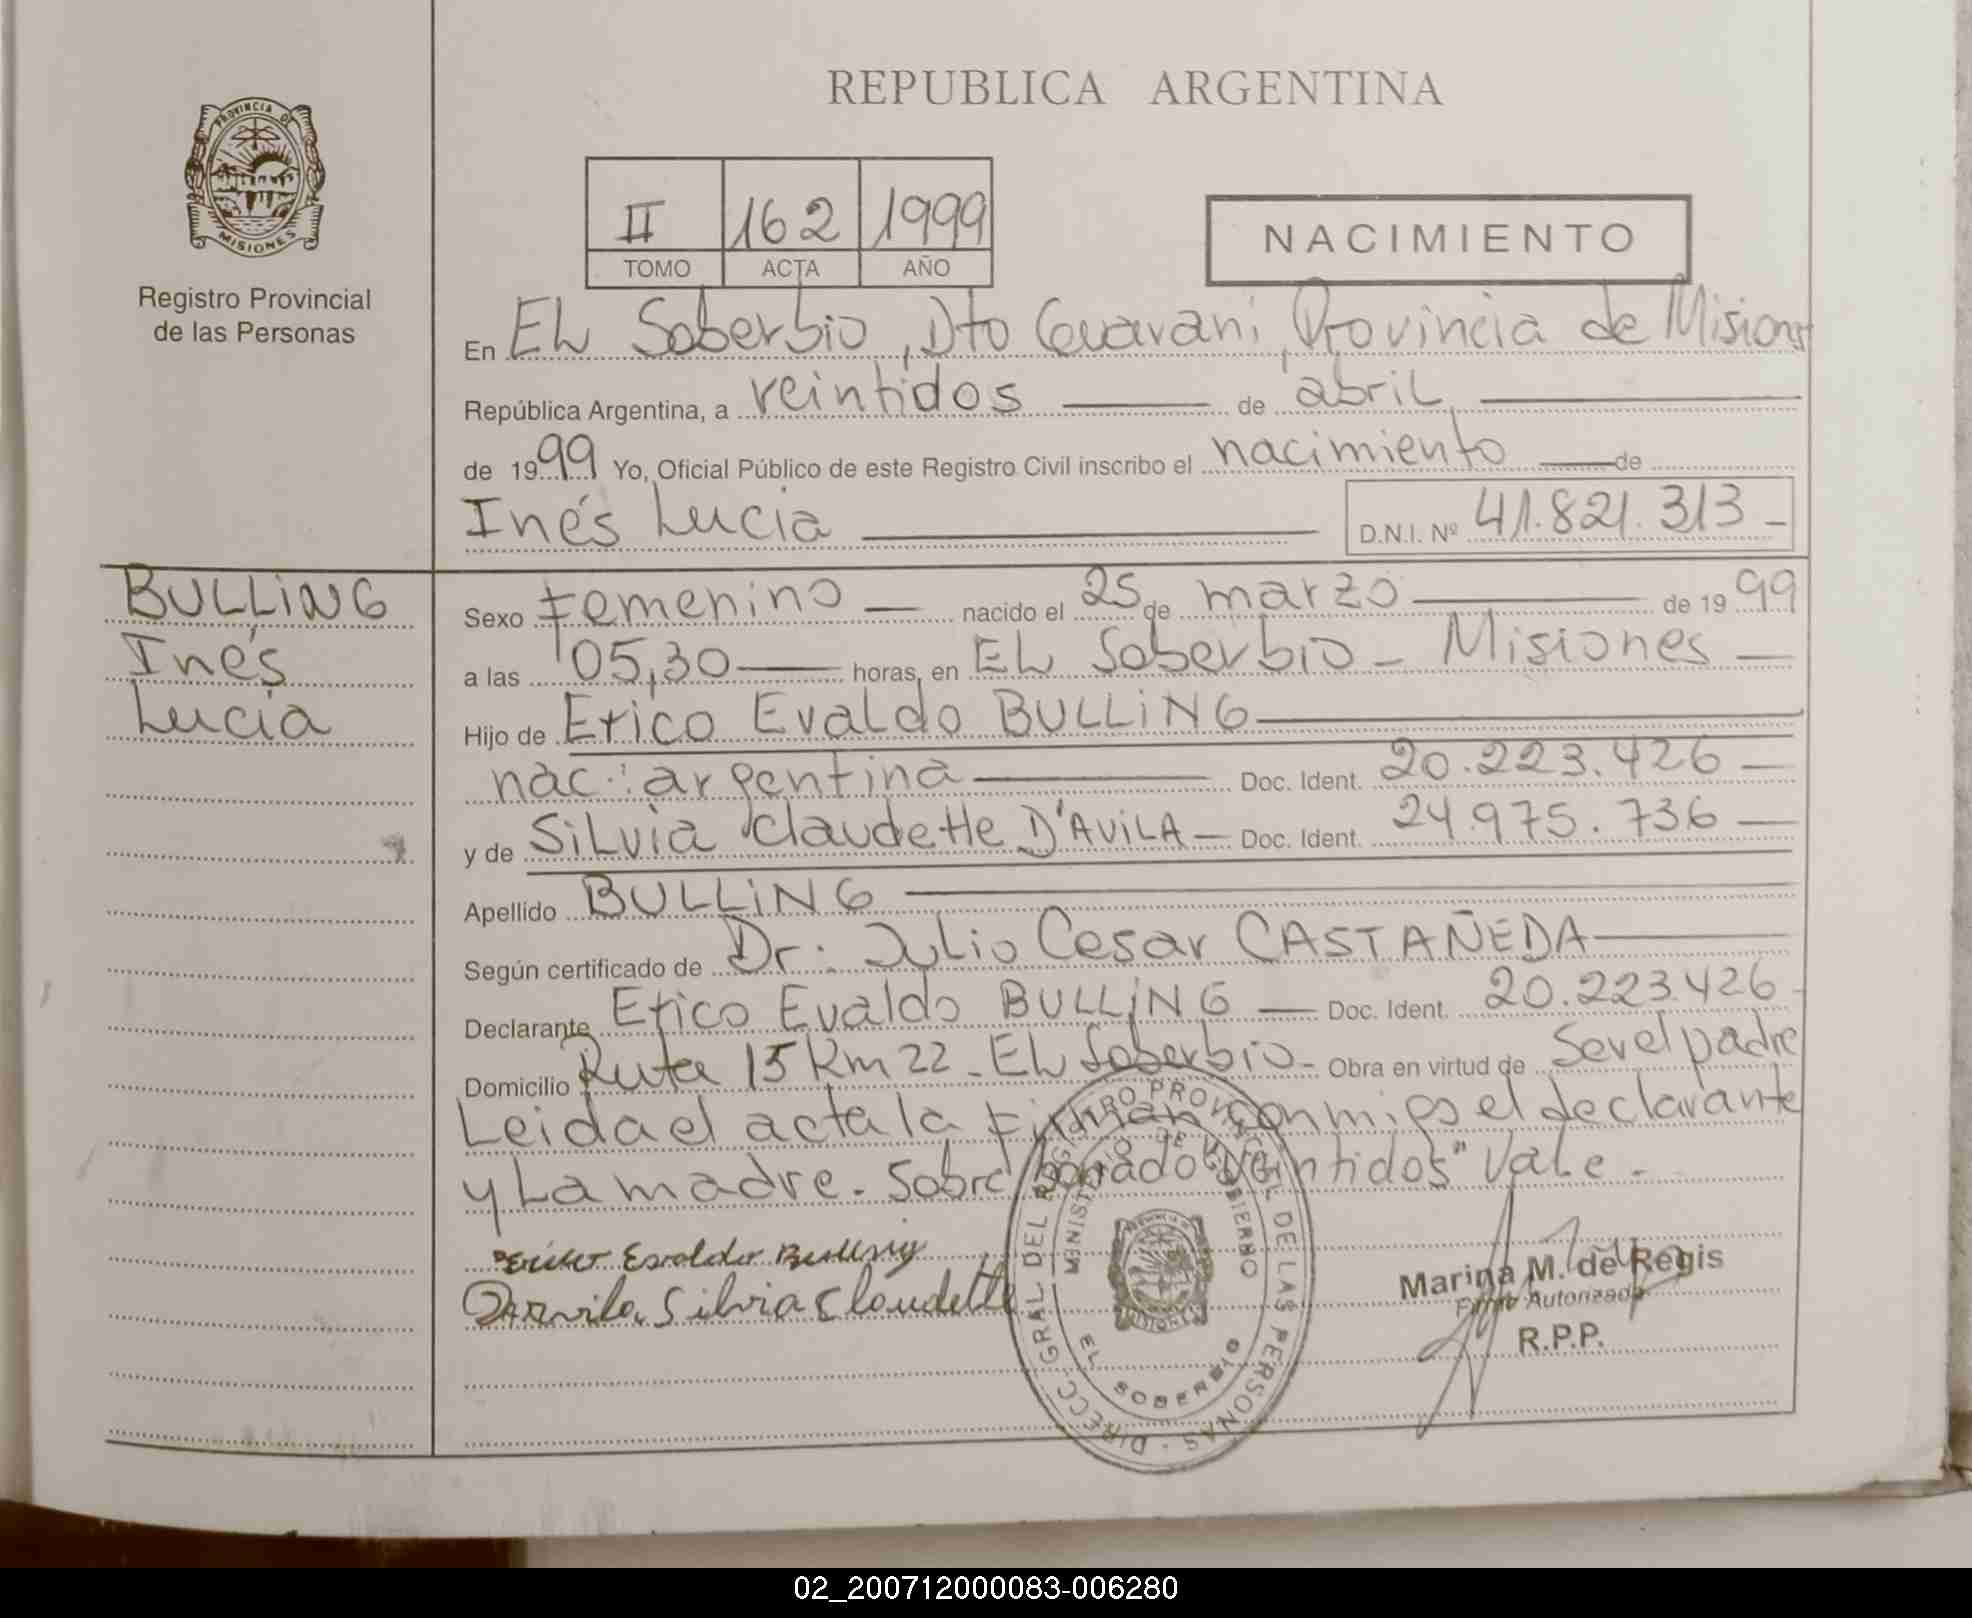 REPUBLICA ARGENTINA
PROVINCIA DE
MISIONES
Registro Provincial
de las Personas
II 162 1999
TOMO ACTA AÑO
NACIMIENTO
En EL Soberbio, Dto Guarani, Provincia de Misiones
República Argentina, a veintidos de abril
de 1999 Yo, Oficial Público de este Registro Civil inscribo el nacimiento de
Inés Lucia D.N.I. Nº 41.821.313
BULLING
Inés
Lucía
Sexo Femenino nacido el 25 de marzo de 1999
a las 05,30 horas, en EL Soberbio - Misiones
Hijo de Erico Evaldo BULLING
nac: argentina Doc. Ident. 20.223.426
y de Silvia Claudette D'AVILA Doc. Ident. 24.975.736
Apellido BULLING
Según certificado de Dr: Julio Cesar CASTAÑEDA
Declarante Erico Evaldo BULLING Doc. Ident. 20.223.426
Domicilio Ruta 15 Km 22 - EL Soberbio - Obra en virtud de Ser el padre
Leida el acta la firman conmigo el declarante
y La madre. Sobre borrado "Veintidos" Vale.
Evaldo Bulling
Davila, Silvia Claudette
DIRECC. GRAL DEL REGISTRO PROVINCIAL DE LAS PERSONAS
MINISTERIO DE GOBIERNO
MISIONES
EL SOBERBIO
Marina M. de Regis
Firma Autorizada
R.P.P.
02_200712000083-006280